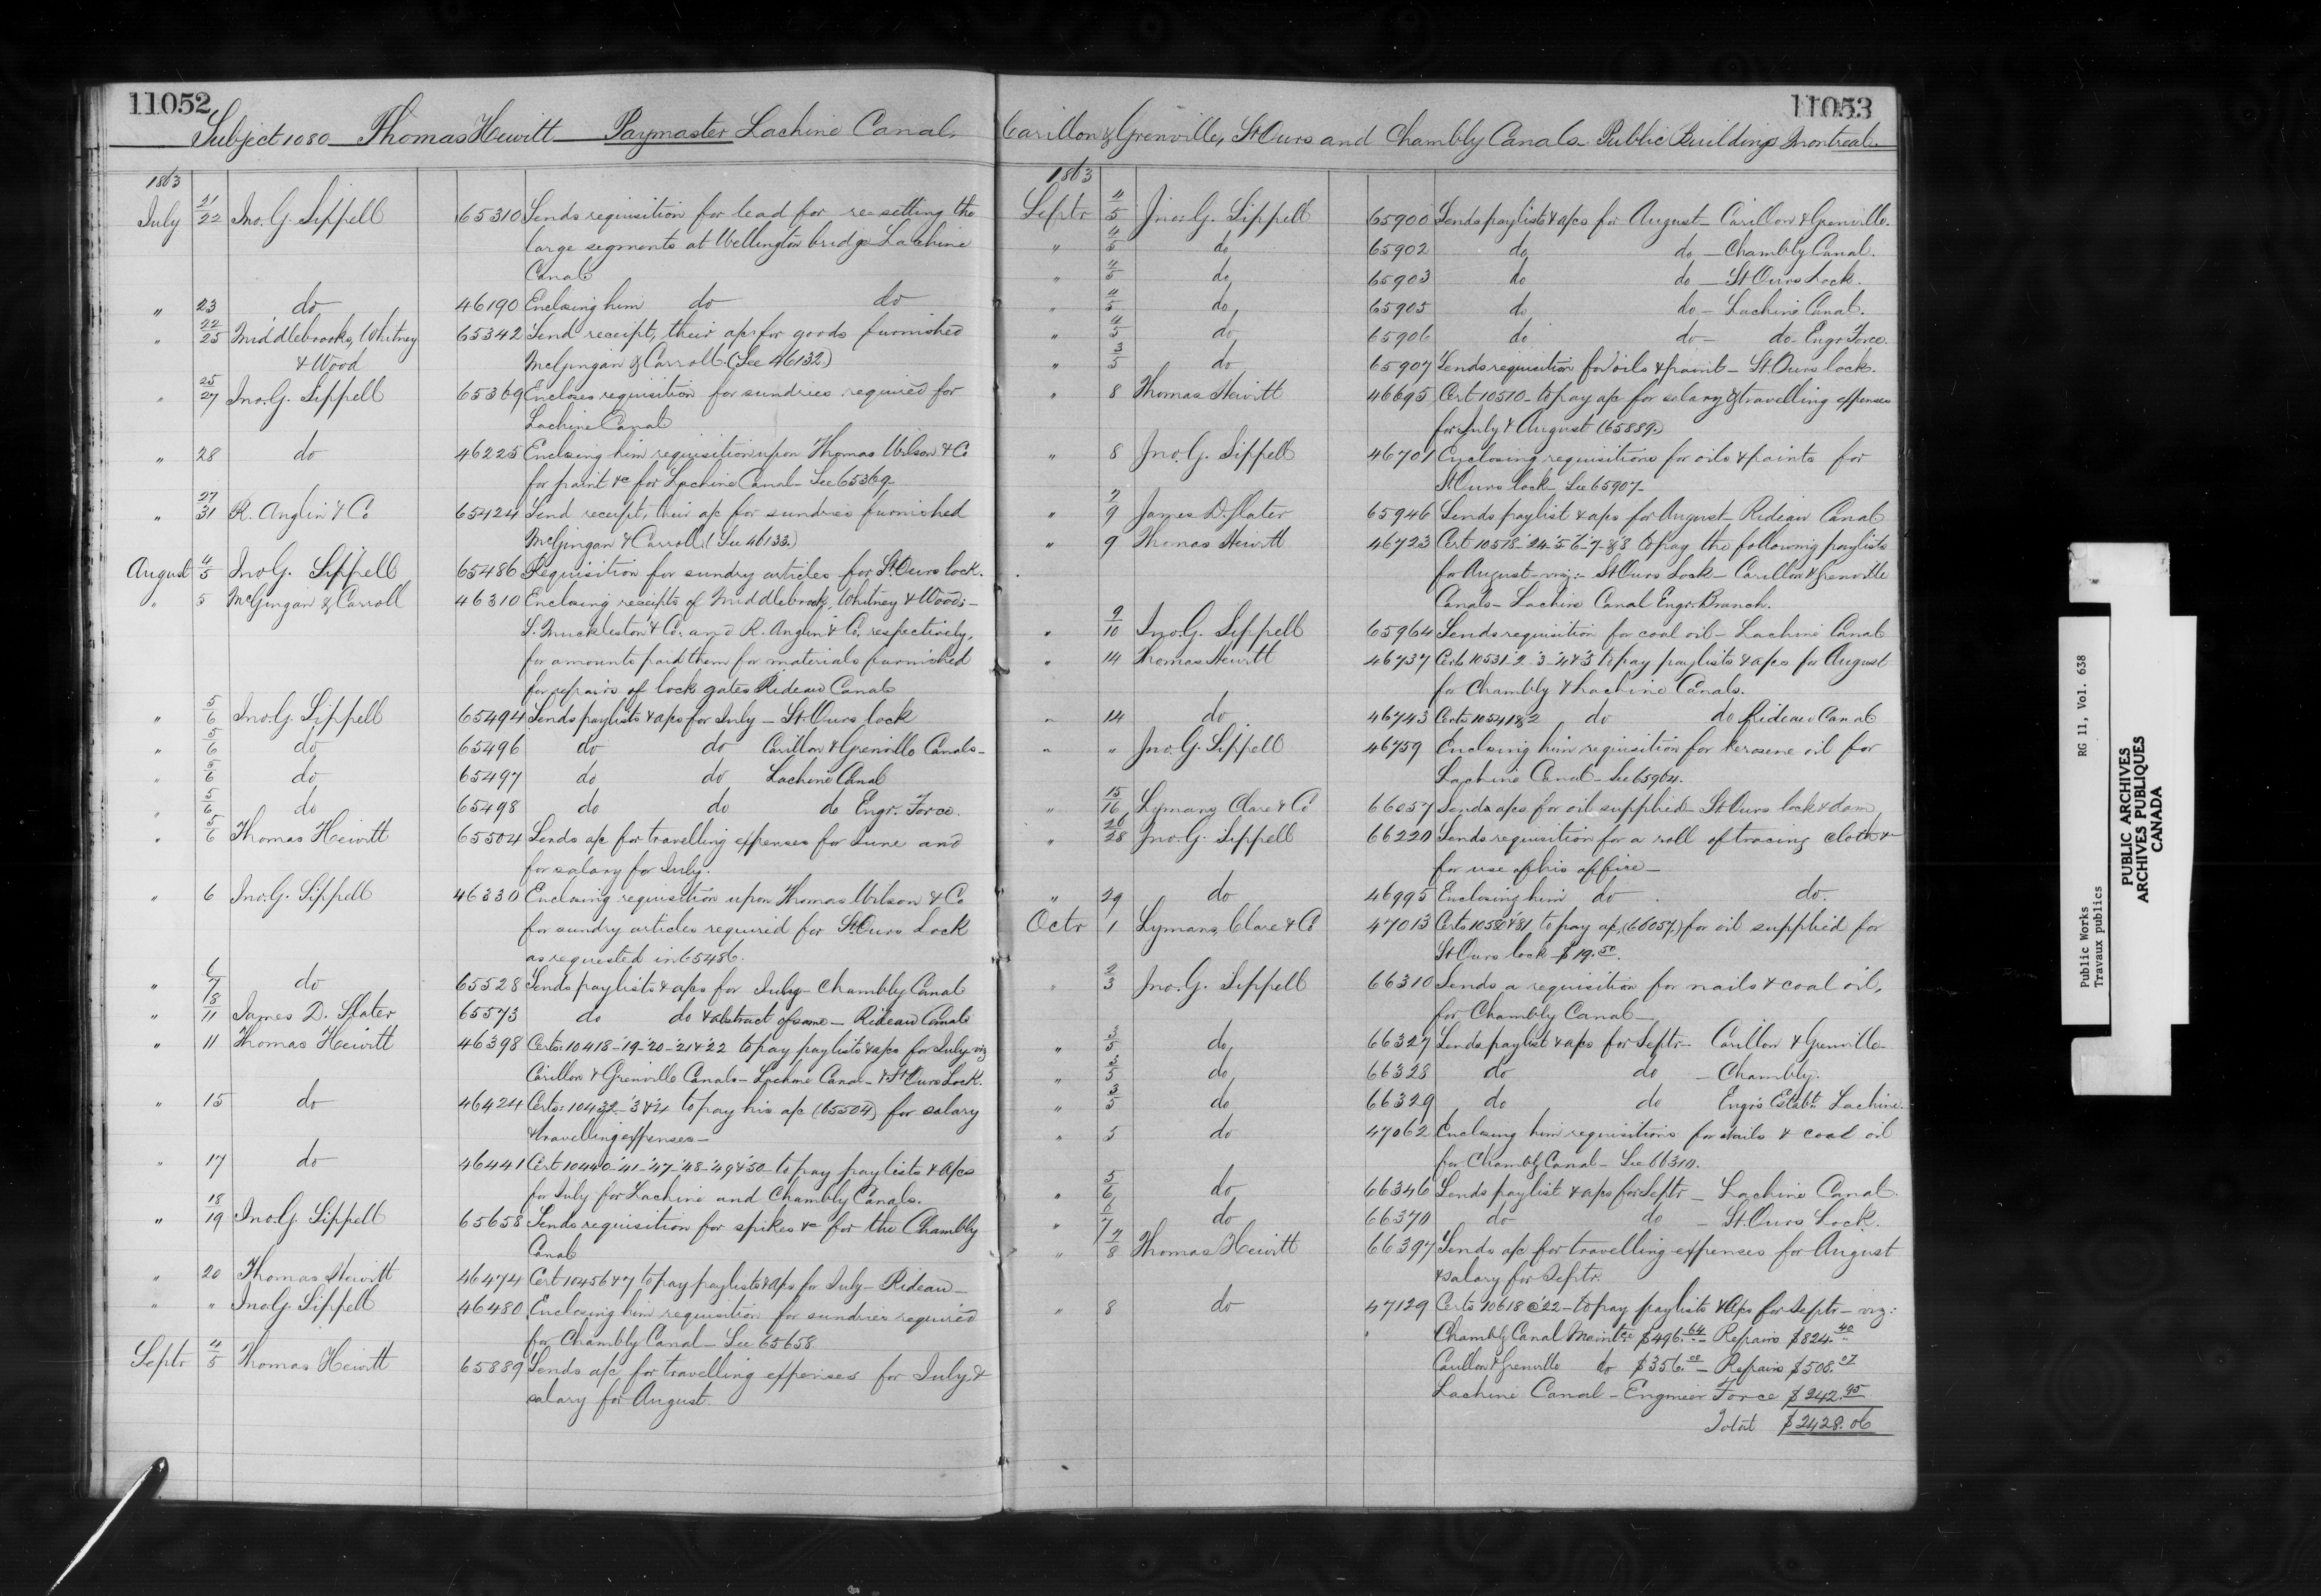 11052
Subject 1080 Thomas Hewitt Paymaster Lachine Canal,
1863
July 21/22 Jno. G. Sippell 65310 Sends requisition for lead for re-setting the
large segments at Wellington bridge Lachine
Canal
" 23 do 46190 Enclosing him do do
" 22/25 Middlebrooks, Whitney 65342 Send receipt, their a/c for goods furnished
& Wood McGingan & Carroll. (See 46132)
" 25/27 Jno. G. Sippell 65369 Encloses requisition for sundries required for
Lachine Canal
" 28 do 46225 Enclosing him requisition upon Thomas Wilson & Co
for paint &c for Lachine Canal - See 65369
" 27/31 R. Anglin & Co 65424 Send receipt, their a/c for sundries furnished
McGingan & Carroll (See 46133.)
August 4/5 Jno. G. Sippell 65486 Requisition for sundry articles for St. Ours lock.
" 5 McGingan & Carroll 46310 Enclosing receipts of Middlebrooks, Whitney & Woods -
S. Muckleston & Co. and R. Anglin & Co. respectively,
for amounts paid them for materials furnished
for repairs of lock gates Rideau Canal
" 5/6 Jno. G. Sippell 65494 Sends paylists & a/cs for July - St. Ours lock
" 5/6 do 65496 do do Carillon & Grenville Canals -
" 5/6 do 65497 do do Lachine Canal
" 5/6 do 65498 do do do Engr. Force.
" 5/6 Thomas Hewitt 65504 Sends a/c for travelling expenses for June and
for salary for July.
" 6 Jno. G. Sippell 46330 Enclosing requisition upon Thomas Wilson & Co
for sundry articles required for St. Ours Lock
as requested in 65486.
" 6/7 do 65528 Sends paylists & a/cs for July - Chambly Canal
" 8/11 James D. Slater 65573 do do & abstract of same - Rideau Canal
" 11 Thomas Hewitt 46398 Certs: 10418-'19-'20-'21 & '22 to pay paylists & a/cs for July viz
Carillon & Grenville Canals - Lachine Canal - & St Ours Lock.
" 15 do 46424 Certs: 10432-'3 & '4 to pay his a/c (65504) for salary
& travelling expenses -
" 17 do 46441 Cert 10440-'41-'47-'48-'49 & '50 - to pay paylists & a/cs
for July for Lachine and Chambly Canals.
" 18/19 Jno. G. Sippell 65658 Sends requisition for spikes &c for the Chambly
Canal
" 20 Thomas Hewitt 46474 Cert 10456 & 7 to pay paylists & a/cs for July - Rideau -
" " Jno. G. Sippell 46480 Enclosing him requisition for sundries required
for Chambly Canal - See 65658.
Septr 4/5 Thomas Hewitt 65889 Sends a/c for travelling expenses for July &
salary for August.
11053
Carillon & Grenville, St Ours and Chambly Canals - Public Buildings Montreal
1863
Septr 4/5 Jno. G. Sippell 65900 Sends paylists & a/cs for August - Carillon & Grenville.
" 4/5 do 65902 do do - Chambly Canal.
" 4/5 do 65903 do do - St Ours Lock.
" 4/5 do 65905 do do - Lachine Canal.
" 4/5 do 65906 do do - do - Engr Force.
" 3/5 do 65907 Sends requisition for oils & paint - St. Ours lock.
" 8 Thomas Hewitt 46695 Cert 10510 - to pay a/c for salary & travelling expenses
for July & August (65889.)
" 8 Jno. G. Sippell 46701 Enclosing requisitions for oils & paints for
St. Ours lock - See 65907 -
" 7/9 James D. Slater 65946 Sends paylist & a/cs for August - Rideau Canal
" 9 Thomas Hewitt 46723 Cert 10518-'24-'5-'6-'7-&'8 to pay the following paylists
for August - viz: - St Ours Lock - Carillon & Grenville
Canals - Lachine Canal Engr. Branch.
" 9/10 Jno. G. Sippell 65964 Sends requisition for coal oil - Lachine Canal
" 14 Thomas Hewitt 46737 Certs 10531-'2-'3-'4 & '5 to pay paylists & a/cs for August
for Chambly & Lachine Canals.
" 14 do 46743 Certs 10541 & 2 do do Rideau Canal
" " Jno. G. Sippell 46759 Enclosing him requisition for kerosene oil for
Lachine Canal - See 65964.
" 15/16 Lymans, Clare & Co 66057 Sends a/cs for oil supplied - St. Ours lock & dam
" 26/28 Jno. G. Sippell 66220 Sends requisition for a roll of tracing cloth &c
for use of his office -
" 29 do 46995 Enclosing him do do.
Octr 1 Lymans, Clare & Co 47013 Certs 10580 & 81 to pay a/c (66057) for oil supplied for
St Ours lock $19.50.
" 2/3 Jno. G. Sippell 66310 Sends a requisition for nails & coal oil,
for Chambly Canal -
" 3/5 do 66327 Sends paylist & a/cs for Septr - Carillon & Grenville -
" 3/5 do 66328 do do - Chambly.
" 3/5 do 66329 do do Engr's Estabt. Lachine -
" 5 do 47062 Enclosing him requisitions for nails & coal oil
for Chambly Canal - See 66310.
" 5/6 do 66346 Sends paylist & a/cs for Septr - Lachine Canal.
" 6/7 do 66370 do do - St. Ours Lock.
" 7/8 Thomas Hewitt 66397 Sends a/c for travelling expenses for August
& salary for Septr.
" 8 do 47129 Certs 10618 @ '22 - to pay paylists & a/cs for Septr - viz:
Chambly Canal Maintce $496.64 Repairs $824.40
Carillon & Grenville do $356.00 - Repairs $508.07
Lachine Canal - Engineer Force $242.95
Total $2428.06
Public Works RG 11, Vol. 638
Travaux publics
PUBLIC ARCHIVES
ARCHIVES PUBLIQUES
CANADA